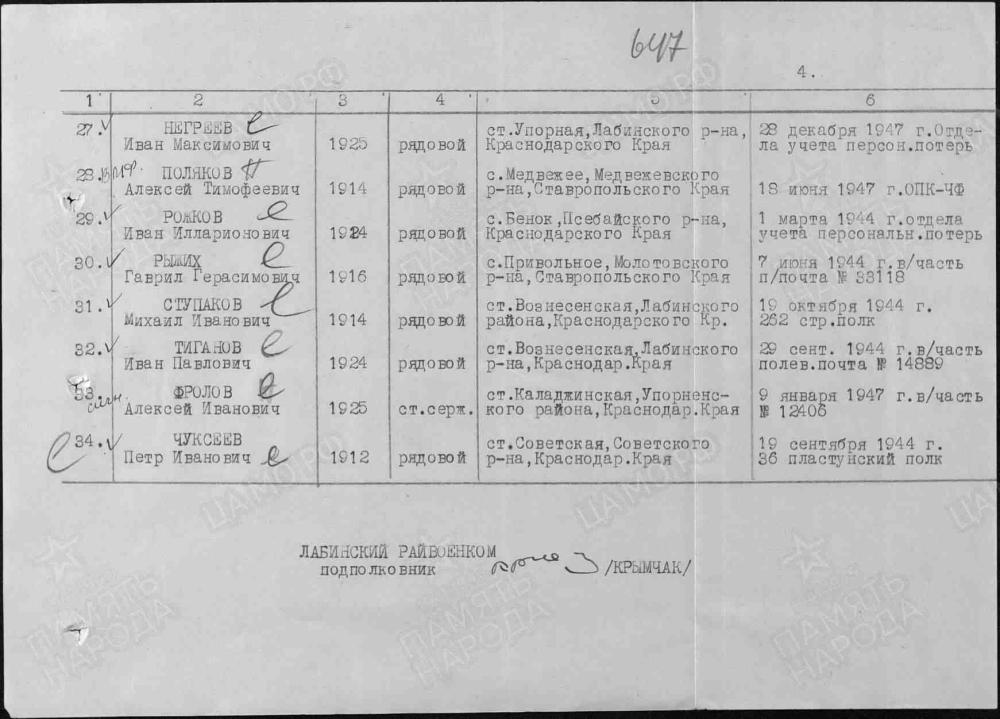 647
4.
1 2 3 4 5 6
27. НЕГРЕЕВ ст.Упорная,Лабинского р-на, 28 декабря 1947 г.Отде-
Иван Максимович 1925 рядовой Краснодарского Края ла учета персон.потерь
28. ПОЛЯКОВ с.Медвежее,Медвежевского
Алексей Тимофеевич 1914 рядовой р-на,Ставропольского Края 18 июня 1947 г.ОПК-ЧФ
29. РОЖКОВ с.Бенок,Псебайского р-на, 1 марта 1944 г.отдела
Иван Илларионович 1924 рядовой Краснодарского Края учета персональн.потерь
30. РЫЖИХ с.Привольное,Молотовского 7 июня 1944 г.в/часть
Гаврил Герасимович 1916 рядовой р-на,Ставропольского Края п/почта № 33118
31. СТУПАКОВ ст.Вознесенская,Лабинского 19 октября 1944 г.
Михаил Иванович 1914 рядовой района,Краснодарского Кр. 262 стр.полк
32. ТИГАНОВ ст.Вознесенская,Лабинского 29 сент. 1944 г.в/часть
Иван Павлович 1924 рядовой р-на,Краснодар.Края полев.почта № 14889
33. ФРОЛОВ ст.Каладжинская,Упорненс- 9 января 1947 г.в/часть
Алексей Иванович 1925 ст.серж. кого района,Краснодар.Края № 12406
34. ЧУКСЕЕВ ст.Советская,Советского 19 сентября 1944 г.
Петр Иванович 1912 рядовой р-на,Краснодар.Края 36 пластунский полк
ЛАБИНСКИЙ РАЙВОЕНКОМ
ПОДПОЛКОВНИК /КРЫМЧАК/
ПАМЯТЬ НАРОДА
ЦАМО.РФ